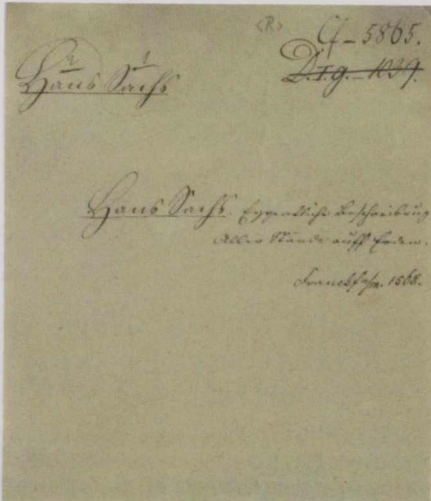 <R>
Cf – 5865.
D.I.g. – 1039.
2 1
Hans Sachs
Hans Sachs. Eygentliche Beschreibung
Aller Stände auff Erden.
Franckf a/m. 1568.